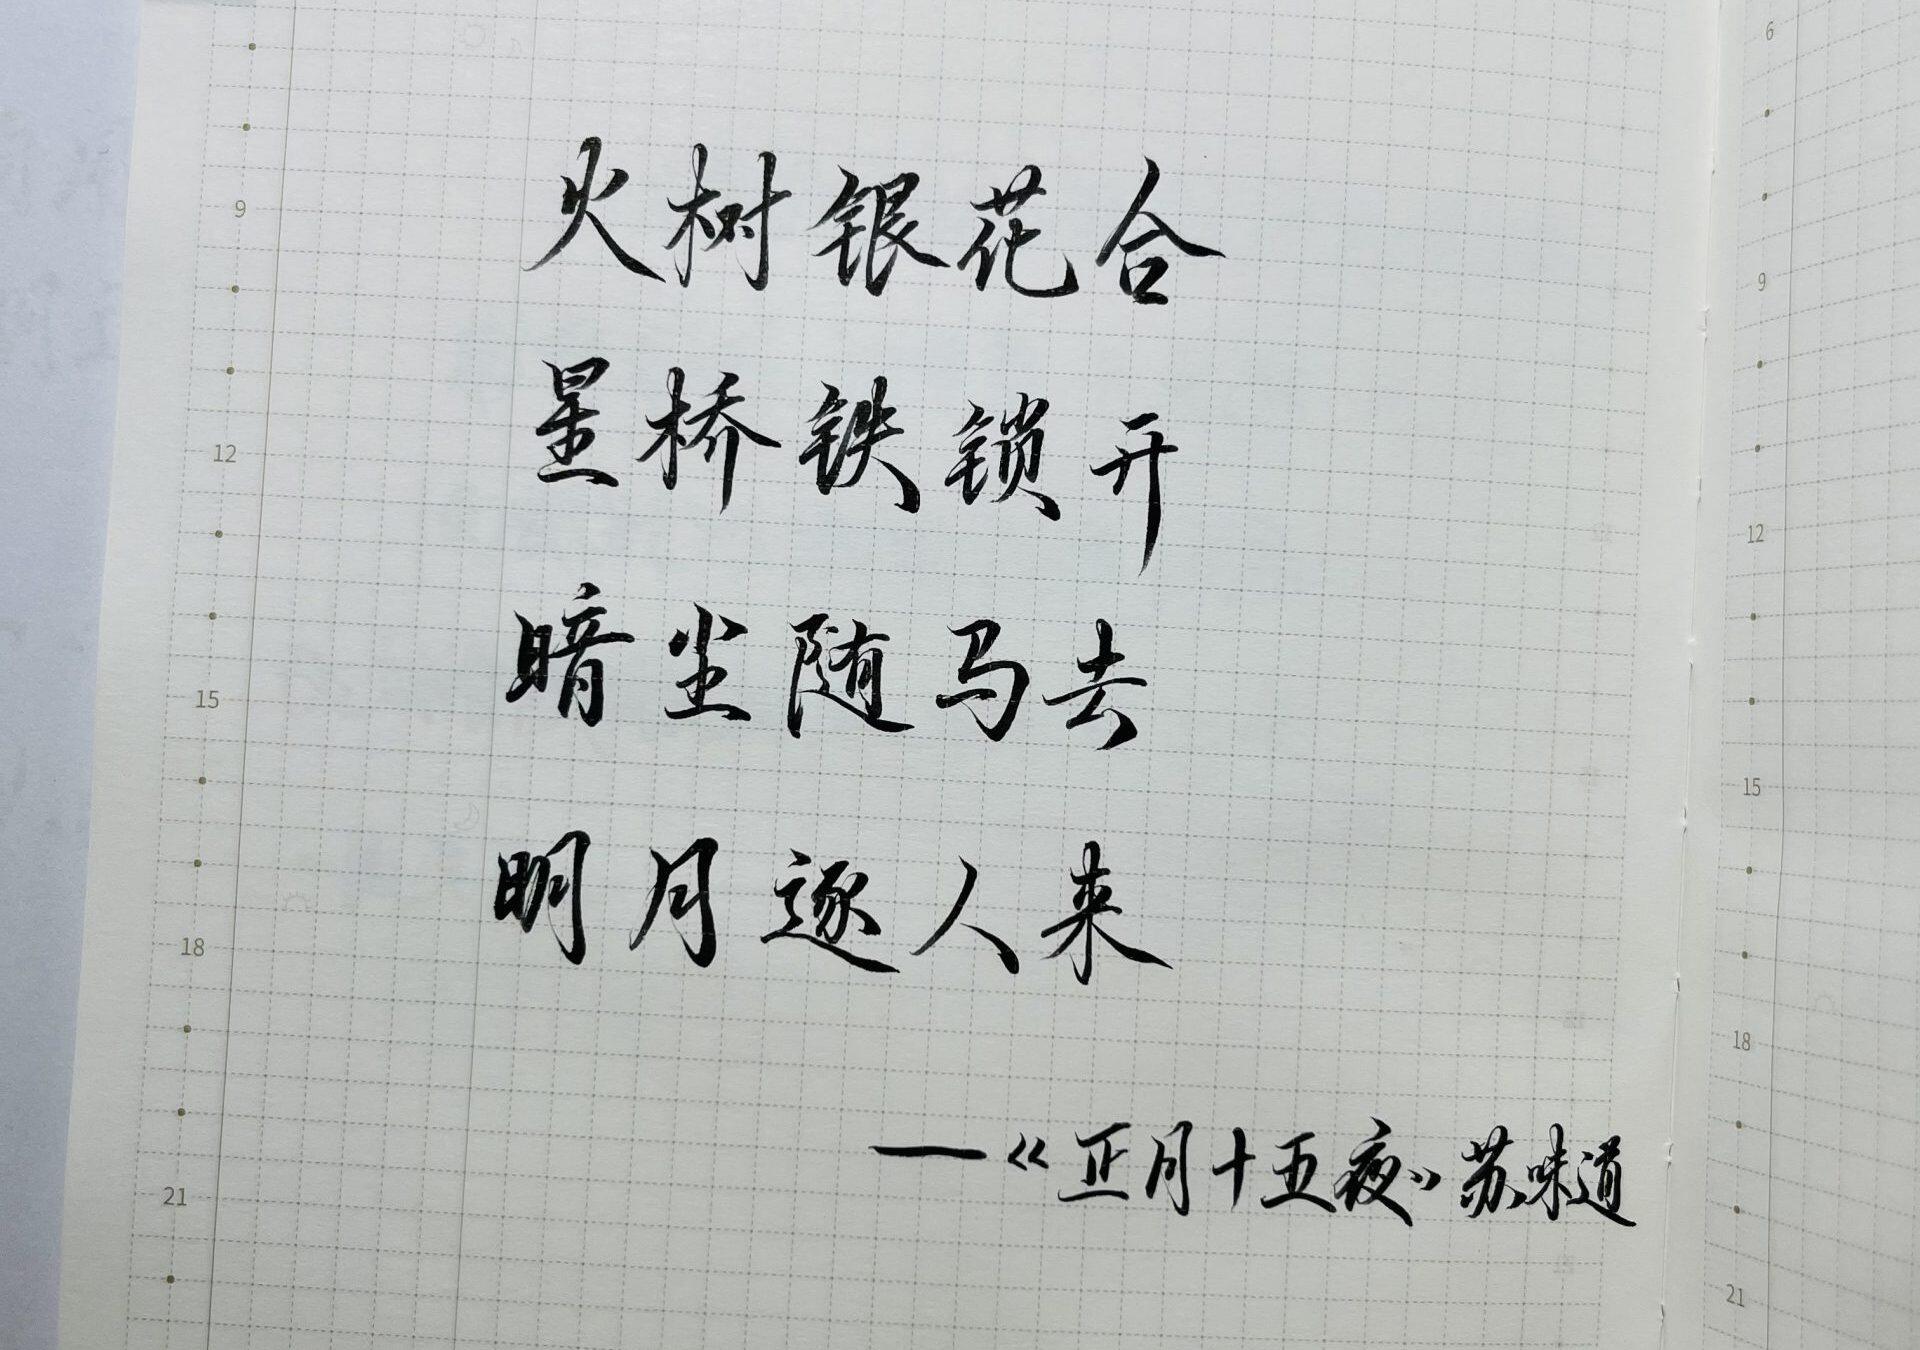 火树银花合
星桥铁锁开
暗尘随马去
明月逐人来
—《正月十五夜》苏味道
9
12
15
18
21
6
9
12
15
18
21